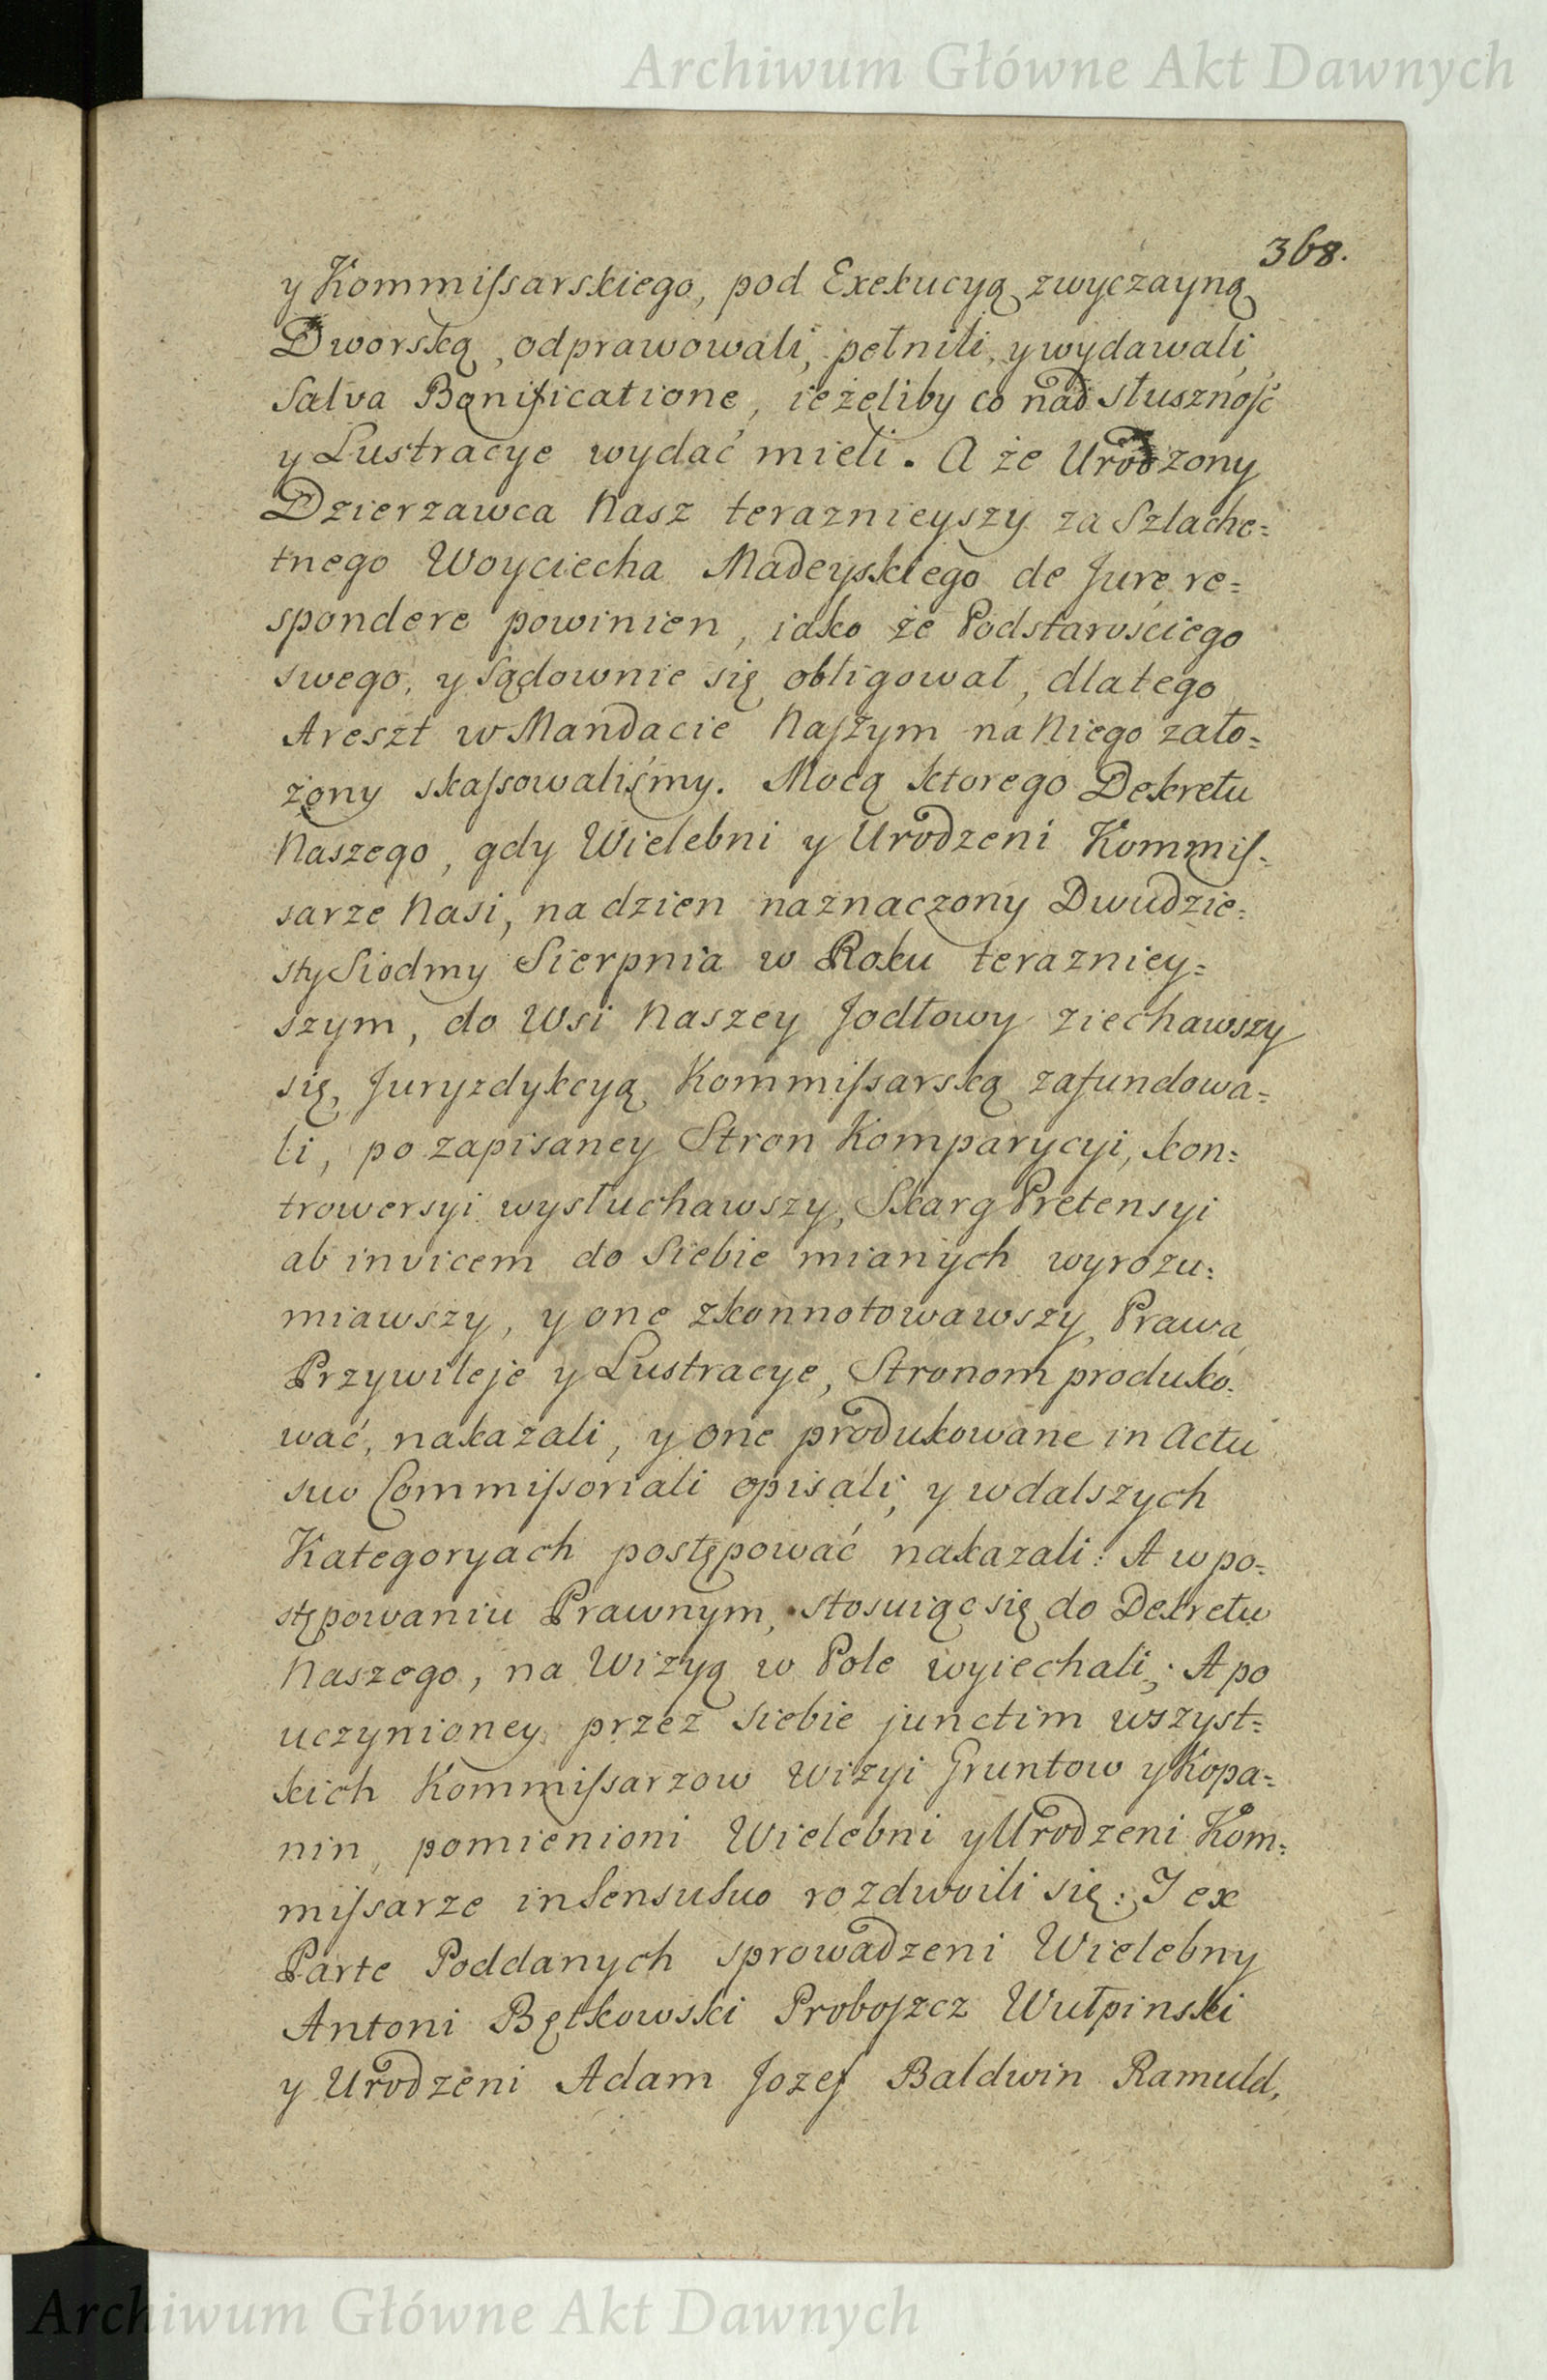 Archiwum Główne Akt Dawnych
368.
y Kommiſsarskiego, pod Exekucyą zwyczayną
Dworską, odprawowali, pełnili, y wydawali,
Salva Bonificatione, ieżeliby co nad słusznoſć
y Lustracye wydać mieli. A że Urodzony
Dzierzawca Nasz teraznieyszy za Szlache=
tnego Woyciecha Madeyskiego de Jure re=
spondere powinien, iako że Podstarościego
swego, y sądownie się obligował, dlatego
Areszt w Mandacie Naſzym na Niego zało=
żony skaſsowaliśmy. Mocą ktorego Dekretu
Naszego, gdy Wielebni y Urodzeni Kommiſ=
sarze Nasi, na dzien naznaczony Dwudzie=
sty Siodmy Sierpnia w Roku terazniey=
szym, do Wsi Naszey Jodłowy ziechawszy
się, Juryzdykcyą Kommiſsarską zafundowa=
li, po zapisaney Stron Komparycyi, kon=
trowersyi wysłuchawszy, Skarg Pretensyi
ab invicem do Siebie mianych wyrozu=
miawszy, y one zkonnotowawszy, Prawa,
Przywileje y Lustracye, Stronom produko=
wać, nakazali, y one produkowane in Actu
suo Commiſsoriali opisali, y w dalszych
Kategoryach postępować nakazali: A w po=
stępowaniu Prawnym, stosuiąc się do Dekretu
Naszego, na Wizyą w Pole wyiechali; A po
uczynioney przez Siebie junctim wszyst=
kich Kommiſsarzow Wizyi Gruntow y Kopa=
nin, pomienioni Wielebni y Urodzeni Kom=
miſsarze in Sensu Suo rozdwoili się: I ex
Parte Poddanych sprowadzeni Wielebny
Antoni Bętkowski Proboſzcz Wułpinski
y Urodzeni Adam Jozef Baldwin Ramułd,
Archiwum Główne Akt Dawnych